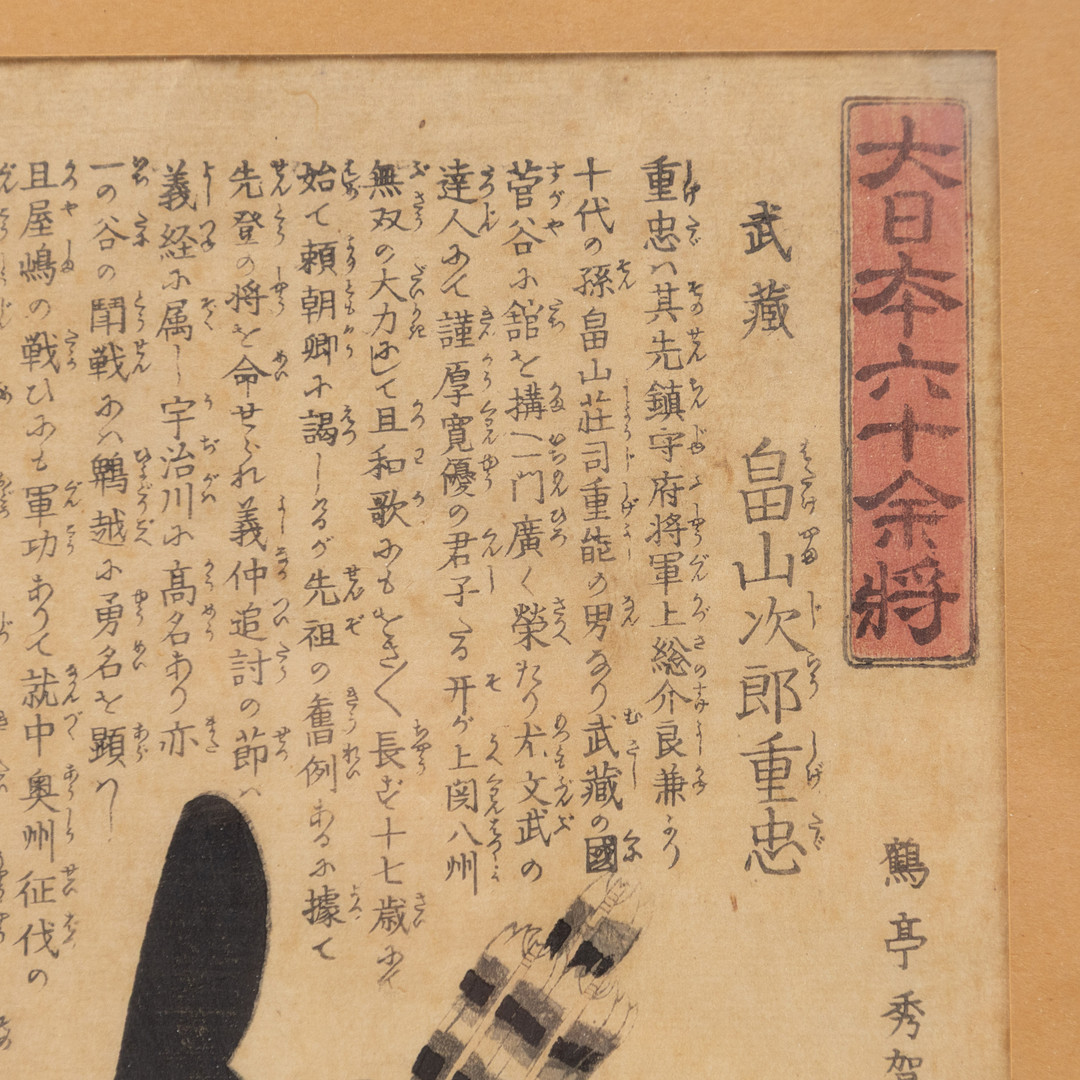 大日本六十余将
鶴亭秀賀
武藏 畠山次郎重忠
重忠ハ其先鎮守府将軍上総介良兼より
十代の孫畠山荘司重能の男なり武藏の國
菅谷に舘を搆へ一門廣く榮たり尤文武の
達人にて謹厚寛優の君子たる而已か上関八州
無双の大力にして且和歌にも
長ず十七歳にて
始て頼朝卿に謁しけるが先祖の舊例あるに據て
先登の将を命せられ義仲追討の節ハ
義経に属し宇治川に髙名あり亦
一の谷の闘戦にハ鵯越に勇名を顕ハし
且屋嶋の戦ひにも軍功ありて就中奥州征伐の